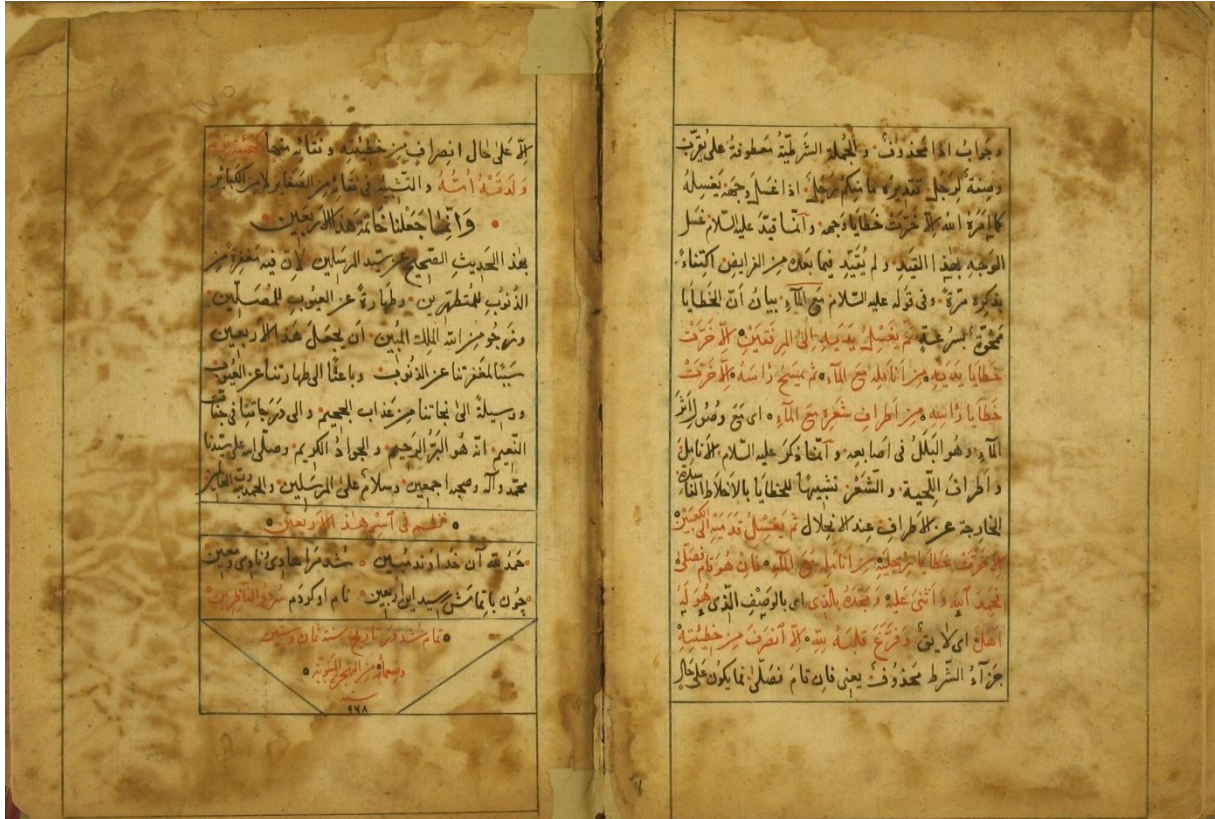 وجواب اذا محذوف والجملة الشرطية معطوفة على يقرب
وصفة لرجل تقديره ما منكم رجل اذا غسل وجهه يغسله
كما امره الله الا خرت خطايا وجهه وانما قيد عليه السلام غسل
الوجه بهذا القيد ولم يقيد فيما بعده من الفرايض اكتفاء
بذكره مرة وفى قوله عليه السلام مع الماء بيان ان الخطايا
ممحوة لسرعة ثم يغسل يديه الى المرفقين الا خرت
خطايا يديه من انامله مع الماء ثم يمسح راسه الا خرت
خطايا راسه من اطراف شعره مع الماء اى مع وصول اثر
الماء وهو البلل فى اصابعه وانما ذكر عليه السلام الانامل
واطراف اللحية والشعر تشبيها للخطايا بالاخلاط الفاسدة
الخارجة عن الاطراف عند الانحلال ثم يغسل قدميه الى الكعبين
الا خرت خطايا رجليه من انامله مع الماء فان هو قام فصلى
فحمد الله واثنى عليه ومجده بالذى اى بالوصف الذى هو له
اهل اى لايق وفرغ قلبه لله الا انصرف من خطيئته
جزاء الشرط محذوف يعنى فان قام فصلى فما يكون على حال
الا على حال انصراف من خطيئته ونقائه منها كهيئة يوم
ولدته امه والتشبيه فى نقائه من الصغاير لا من الكباير
وانما جعلنا خاتمة هذا الاربعين
بهذا الحديث الصحيح عن سيد المرسلين لان فيه مغفرة من
الذنوب للمتطهرين وطهارة عن العيوب للمصلين
ونرجو من الله الملك المبين ان يجعل هذا الاربعين
سببا لمغفرتنا عن الذنوب وباعثا الى طهارتنا عن العيوب
ووسيلة الى نجاتنا من عذاب الجحيم والى درجاتنا فى جنات
النعيم انه هو البر الرحيم والجواد الكريم وصلى الله على سيدنا
محمد وآله وصحبه اجمعين وسلام على المرسلين والحمد لله رب العالمين
نظم فى اسم هذا الاربعين
حمد لله آن خداوند مبين شد مرا هادى ونادى ومعين
چون باتمامش رسيد اين اربعين نام او كردم سرور الناظرين
تمام شد در تاريخ سنة ثمان وستين
وتسعمائه من الهجرة النبوية
٩٦٨